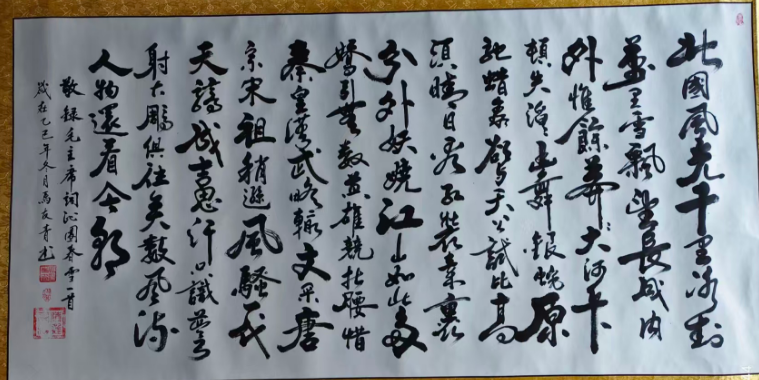 北國風光千里冰封
萬里雪飄望長城內
外惟餘莽莽大河上下
頓失滔滔山舞銀蛇原
馳蠟象欲與天公試比高
須晴日看紅裝素裹
分外妖嬈江山如此多
嬌引無數英雄競折腰惜
秦皇漢武略輸文采唐
宗宋祖稍遜風騷一代
天驕成吉思汗只識彎弓
射大鵰俱往矣數風流
人物還看今朝
敬錄毛主席詞沁園春雪一首
歲在乙巳年冬月馬友青書